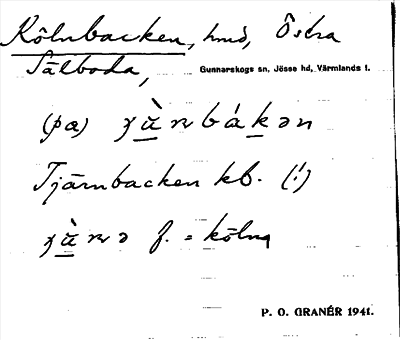 Kölnbacken, hmd, Östra
Sälboda,
Gunnarskogs sn, Jösse hd, Värmlands l.
(pæ)
Tjärnbacken kb. (!)
f. = kölna
P. O. GRANÉR 1941.